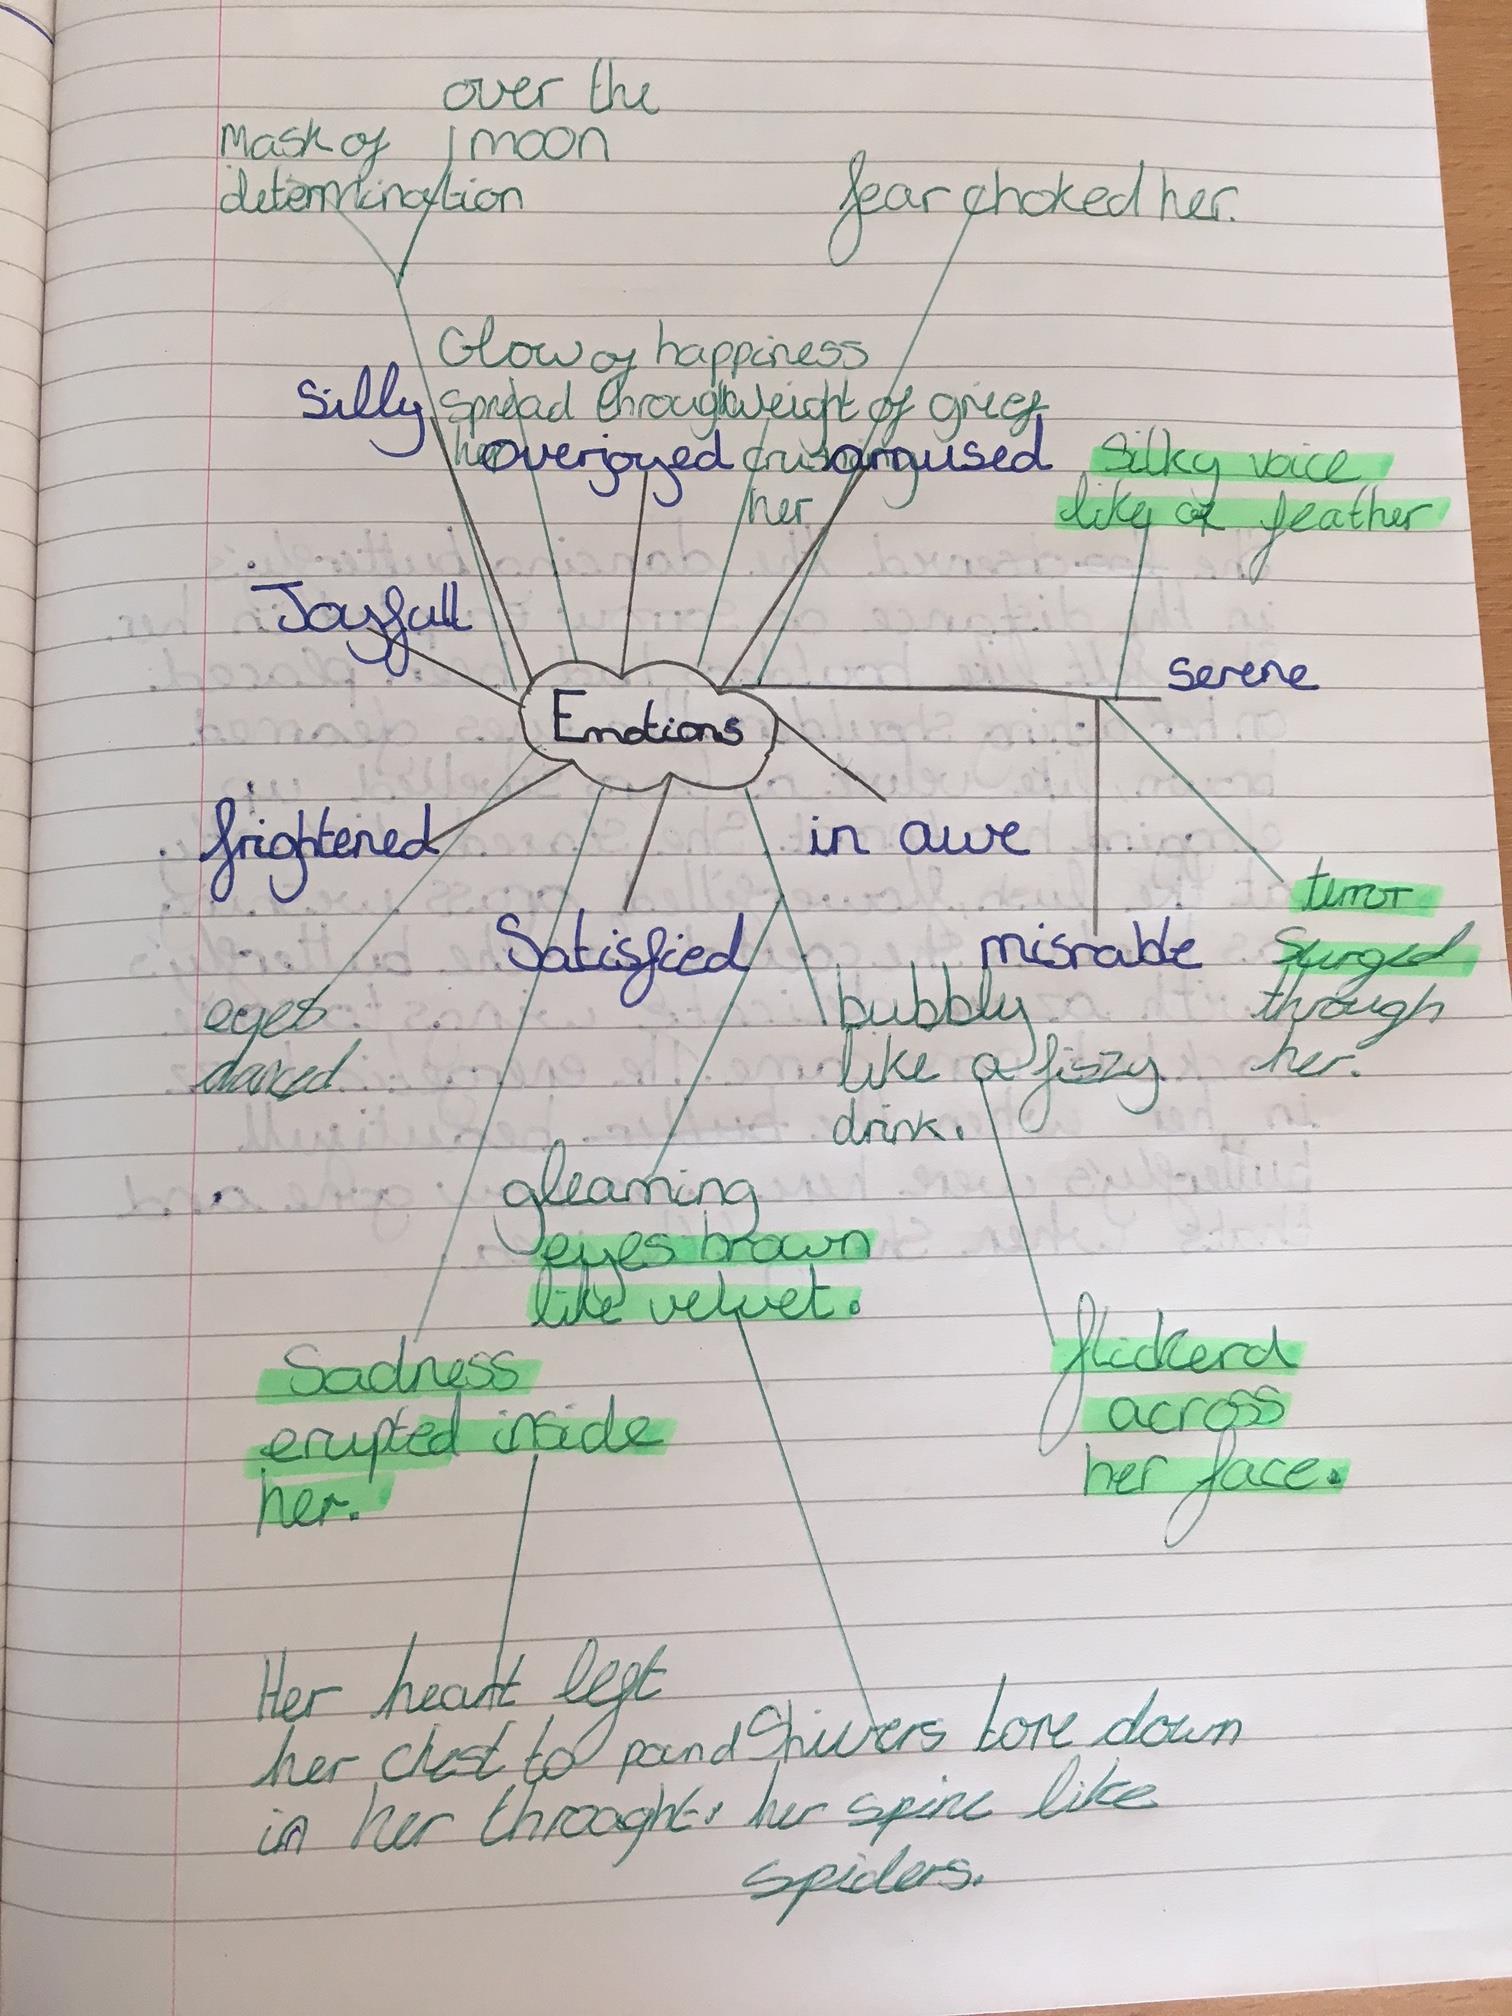 over the
moon
Mask of
determination
fear choked her.
Glow of happiness
spread through
her
Silly
overjoyed
weight of grief
crushing
her
amused
Silky voice
like a feather
Joyfull
serene
Emotions
frightened
in awe
Satisfied
misrable
terror
surged
through
her.
eyes
danced
bubbly
like a fizzy
drink.
gleaming
eyes brown
like velvet.
Sadness
erupted inside
her.
flickerd
across
her face.
Her heart left
her chest to pound
in her throught.
Shivers tore down
her spine like
spiders.